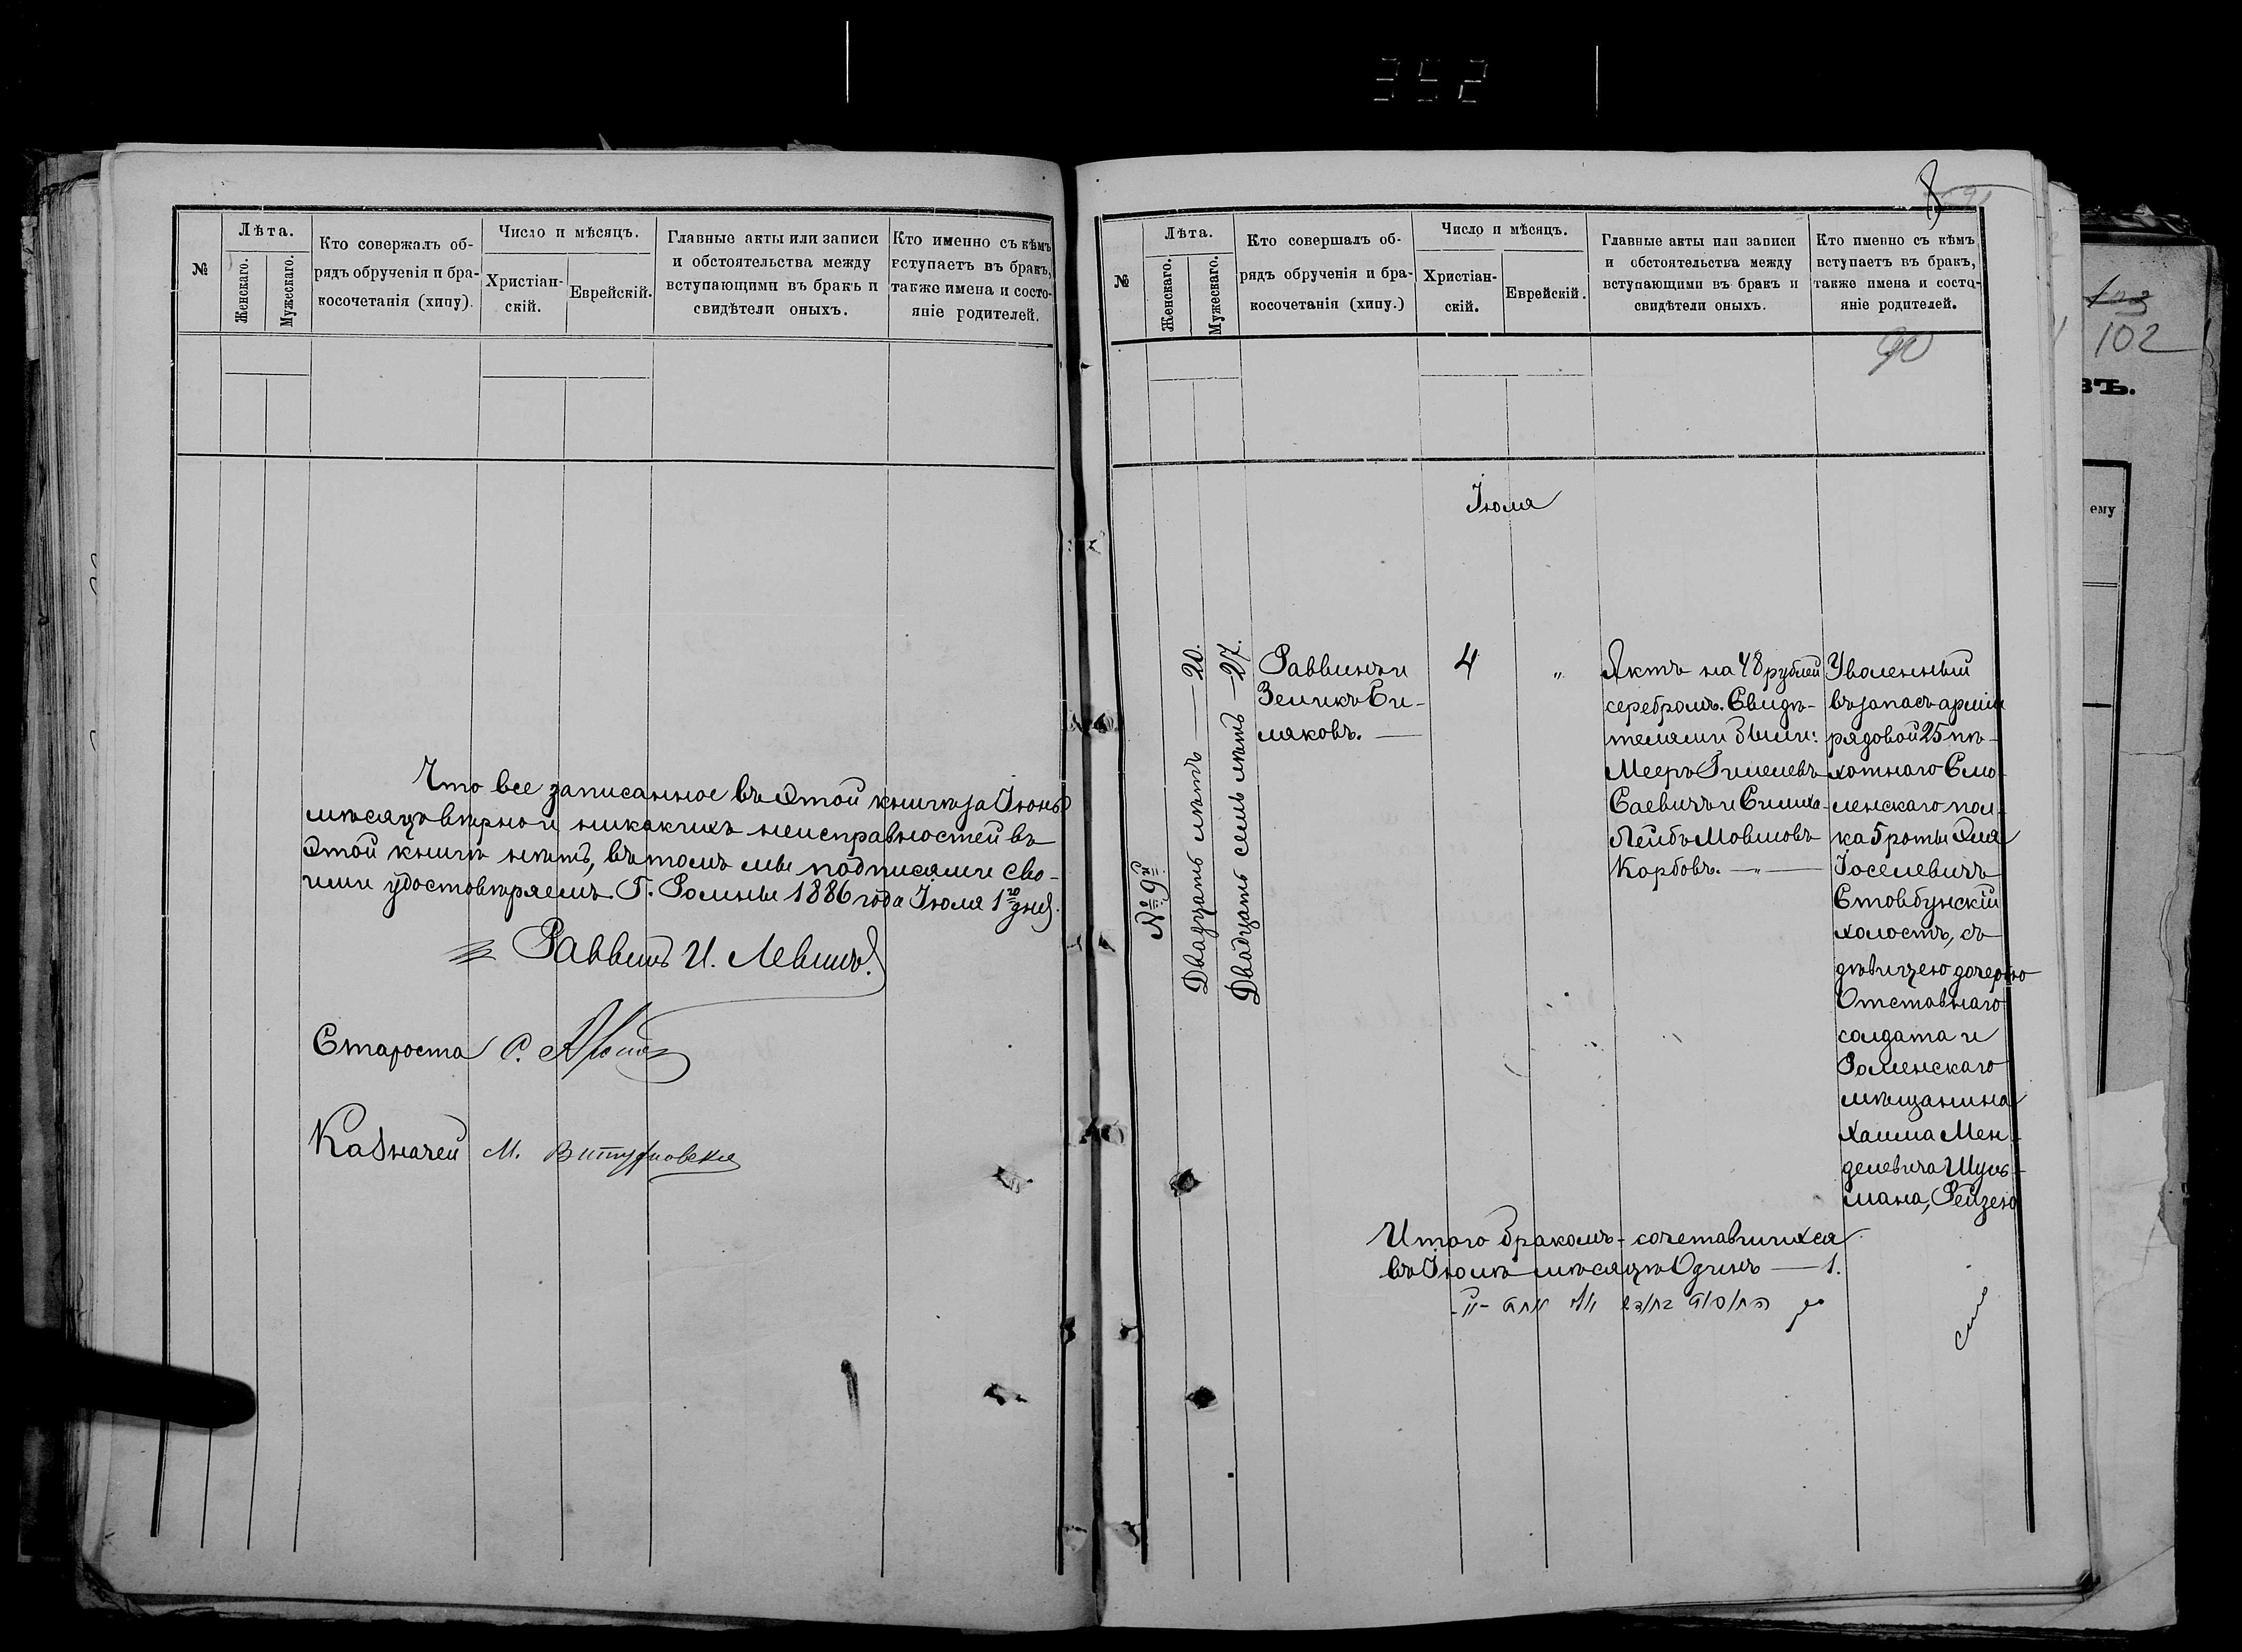 352
№
Лѣта.
Женскаго.
Мужескаго.
Кто совержалъ об-
рядъ обрученія и бра-
косочетанія (хипу).
Число и мѣсяцъ.
Христіан-
скій.
Еврейскій.
Главные акты или записи
и обстоятельства между
вступающими въ бракъ и
свидѣтели оныхъ.
Кто именно съ кѣмъ
вступаетъ въ бракъ,
также имена и состо-
яніе родителей.
Что все записанное въ этой книгѣ за Іюнь
мѣсяцъ вѣрно и никакихъ неисправностей въ
этой книгѣ нѣтъ, въ томъ мы подписями сво-
ими удостовѣряемъ. Г. Ромны 1886 года Іюля 1го дня.
Раввинъ И. Левинъ.
Староста С.
Казначей М.
8
№
Лѣта.
Женскаго.
Мужескаго.
Кто совершалъ об-
рядъ обрученія и бра-
косочетанія (хипу.)
Число и мѣсяцъ.
Христіан-
скій.
Еврейскій.
Главные акты или записи
и обстоятельства между
вступающими въ бракъ и
свидѣтели оныхъ.
Кто именно съ кѣмъ
вступаетъ въ бракъ,
также имена и состо-
яніе родителей.
90
Іюля
№ 9й
Двадцать лѣтъ — 20.
Двадцать семь лѣтъ — 27.
Раввинъ и
Зеликъ Си-
маковъ. —
4
"
Актъ на 48 рублей
серебромъ. Свидѣ-
телями были:
Мееръ Гилелевъ
Саевичъ и Симха-
Лейбъ Мовшовъ
Корбовъ. — " —
Уволенный
въ запасъ арміи
рядовой 25 пѣ-
хотнаго Смо-
ленскаго пол-
ка 5 роты Эля
Іоселевичъ
Стовбунскій
холостъ, съ
дѣвицею дочерью
Отставнаго
солдата и
Роменскаго
мѣщанина
Хаима Мен-
делевича Шуль-
мана, Рейзею
Итого бракомъ-сочетавшихся
въ Іюлѣ мѣсяцѣ Одинъ — 1.
102
ВЪ.
ему